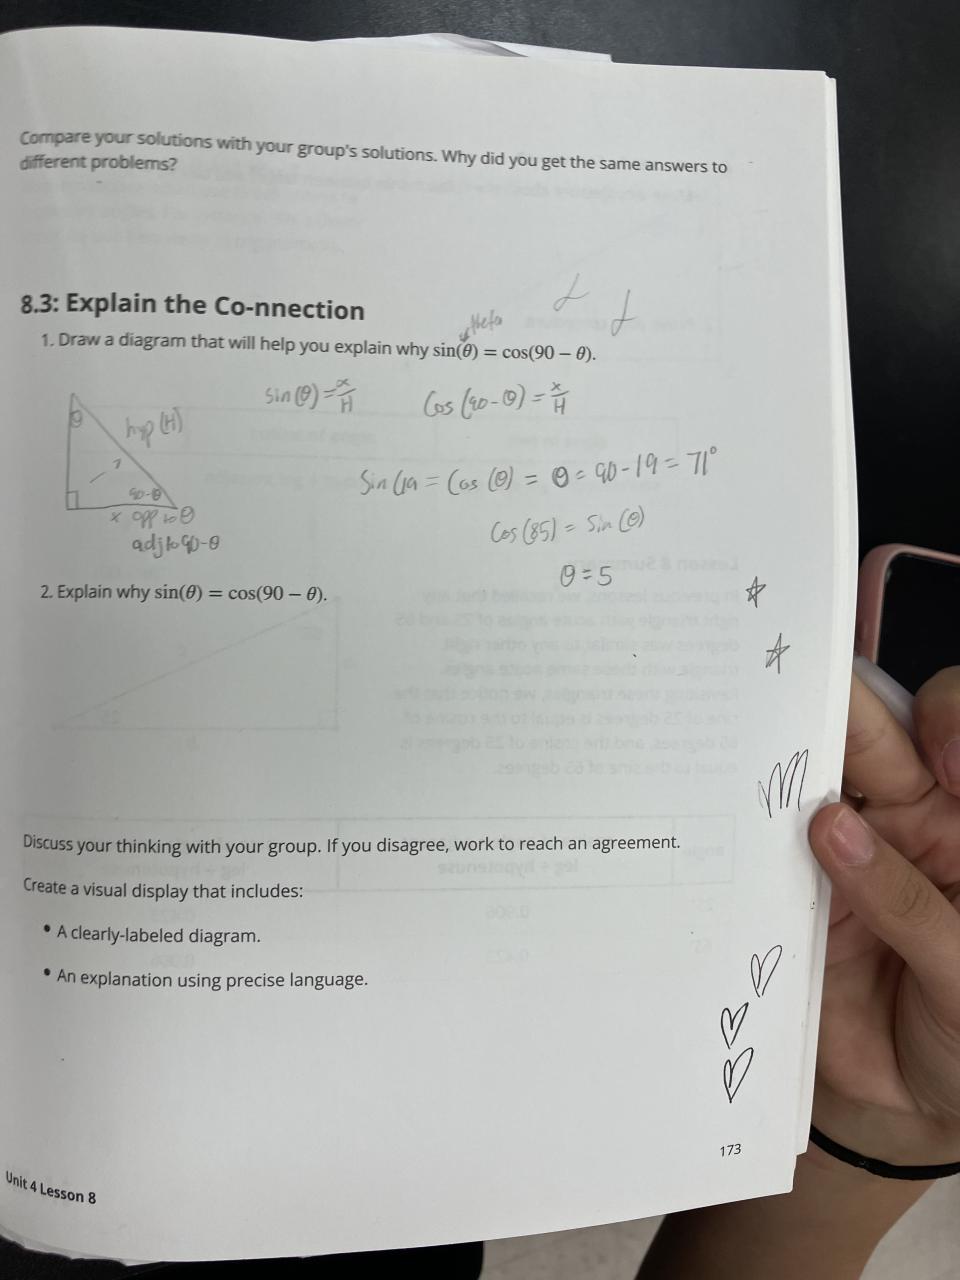 Compare your solutions with your group's solutions. Why did you get the same answers to
different problems?
8.3: Explain the Co-nnection
theta
1. Draw a diagram that will help you explain why sin(θ) = cos(90 − θ).
sin(θ) = x/H
Cos(90-θ) = x/H
θ
hyp (H)
90-θ
x opp to θ
adj to 90-θ
Sin(19 = Cos(θ) = θ = 90-19 = 71°
Cos(85) = Sin(θ)
θ = 5
2. Explain why sin(θ) = cos(90 − θ).
Discuss your thinking with your group. If you disagree, work to reach an agreement.
Create a visual display that includes:
• A clearly-labeled diagram.
• An explanation using precise language.
173
Unit 4 Lesson 8